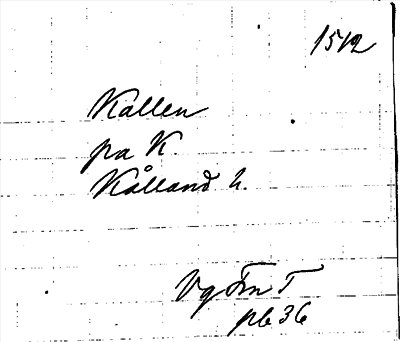 1512
Kållen
på K.
Kålland h.
Vg Fm T
pb 36